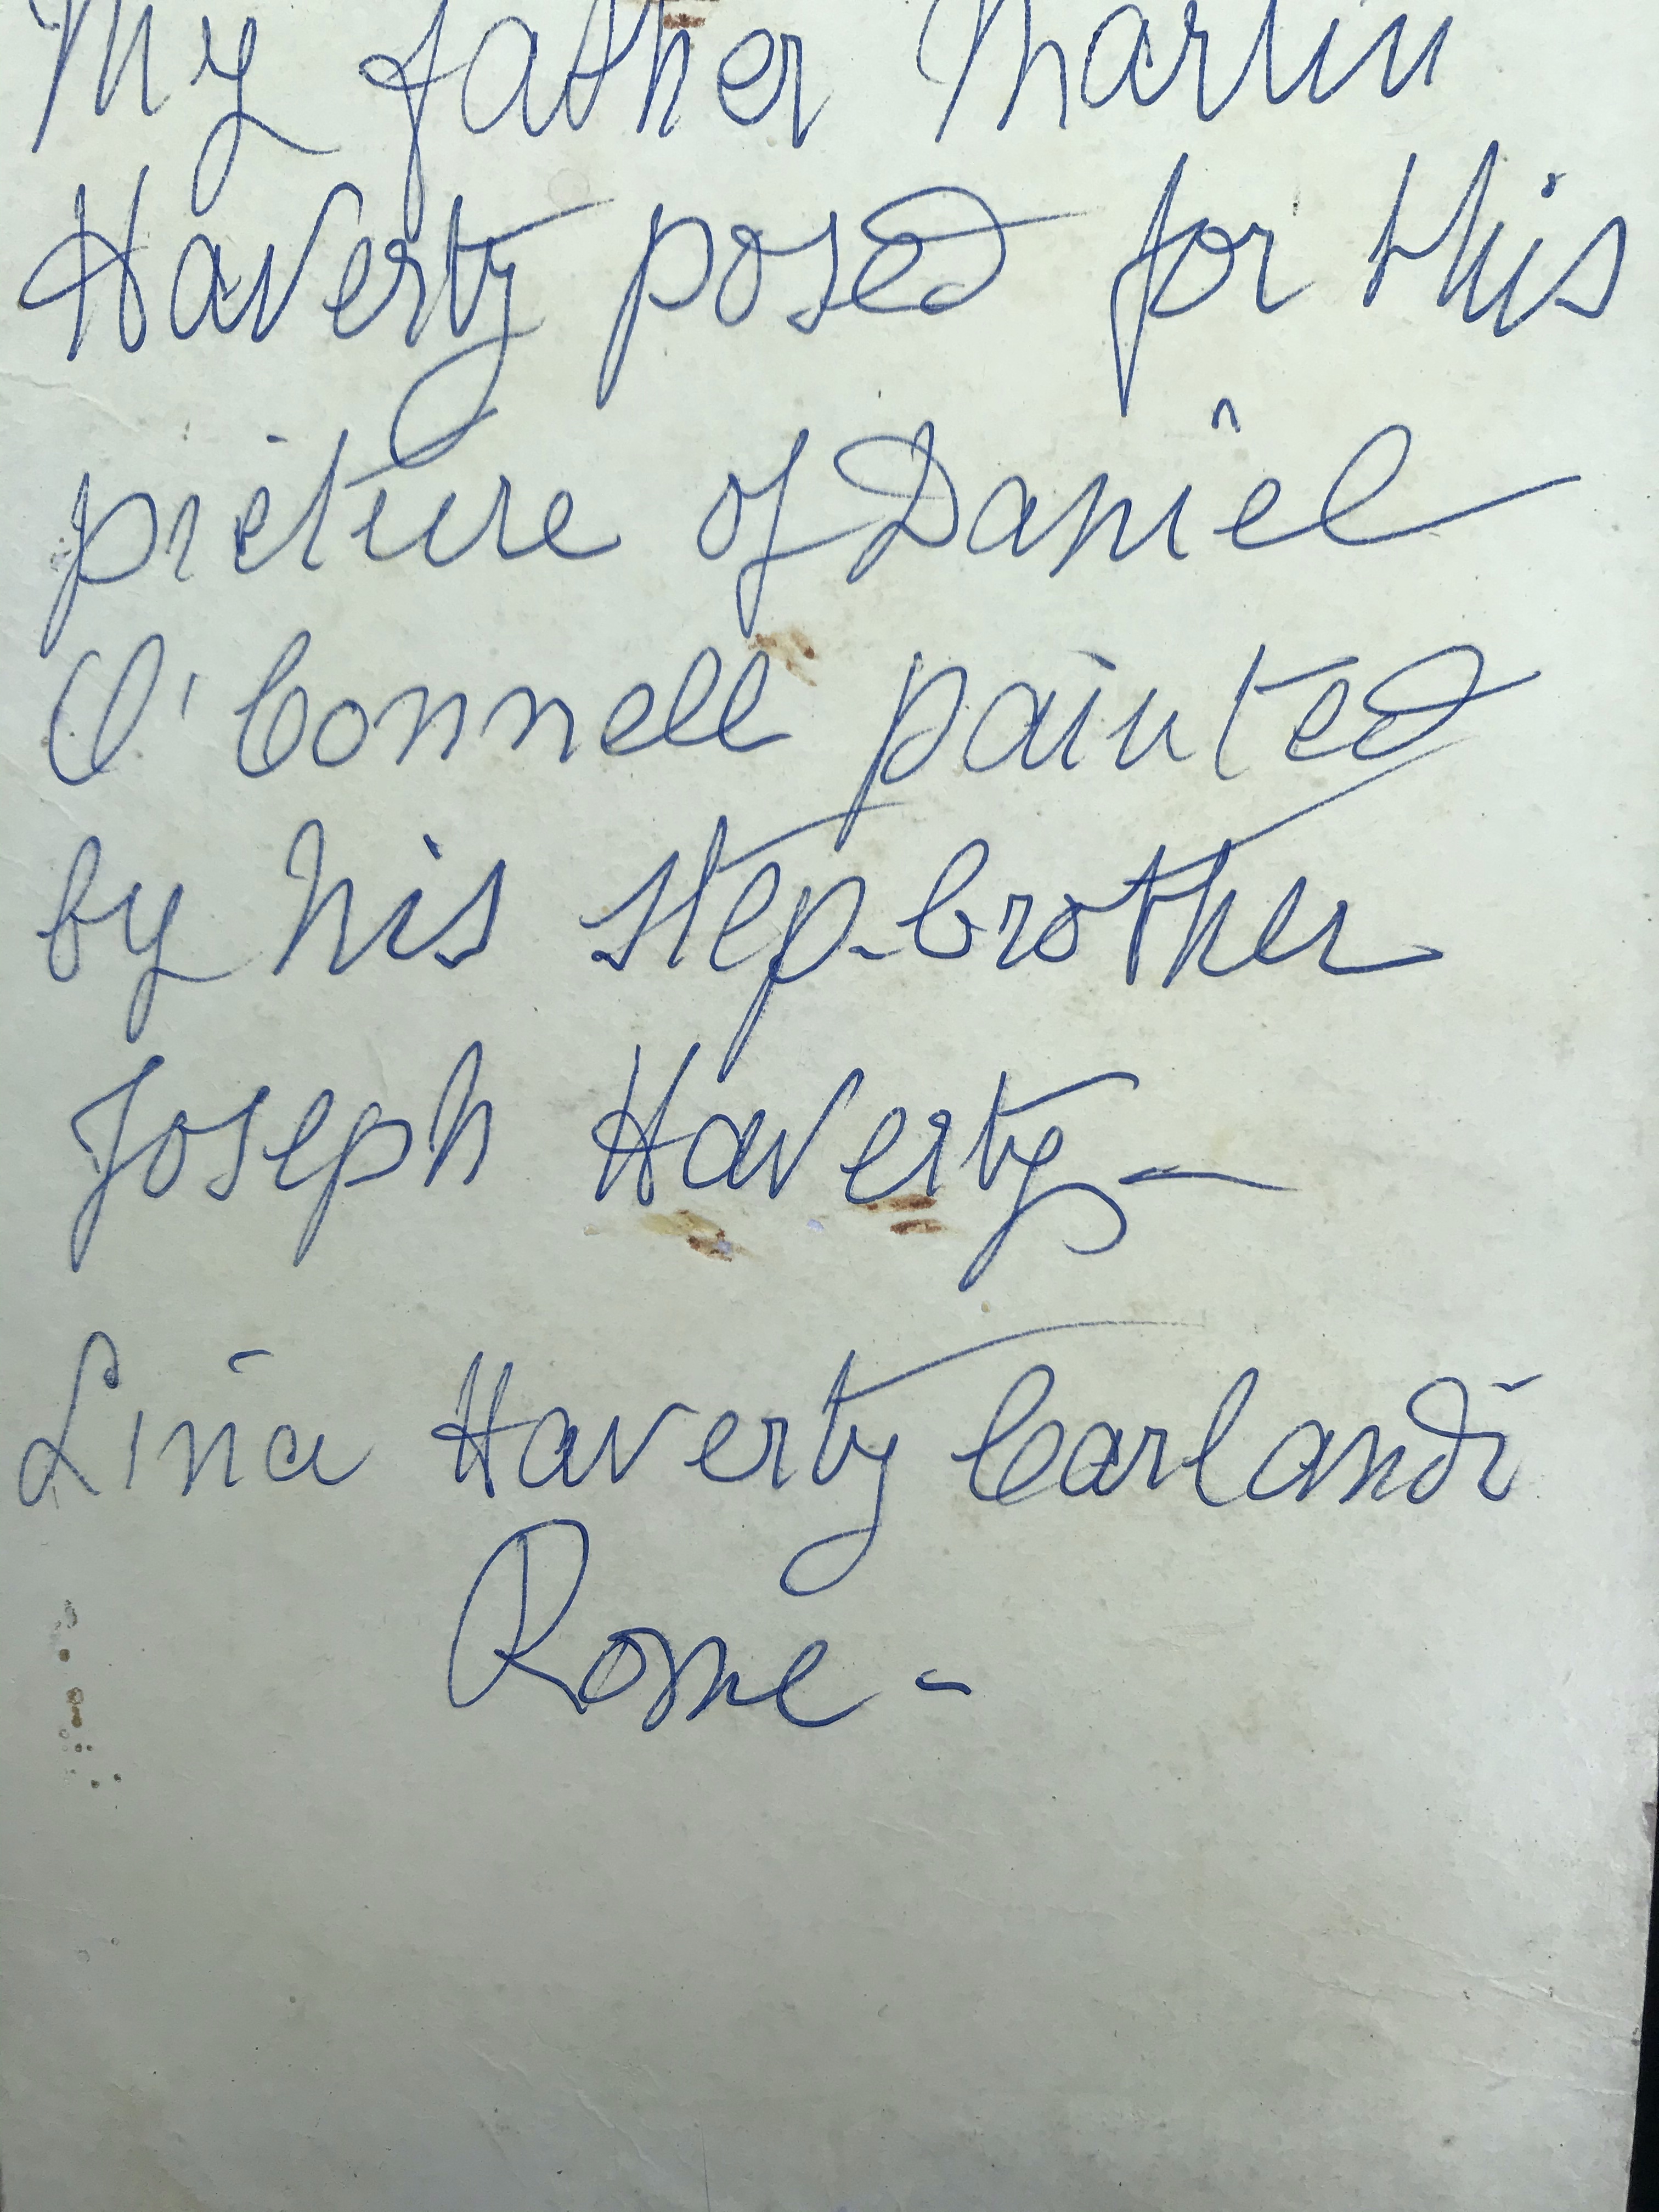 My father Martin
Haverty posed for this
picture of Daniel
O'Connell painted
by his step-brother
Joseph Haverty –
Lina Haverty Carlandi
Rome -